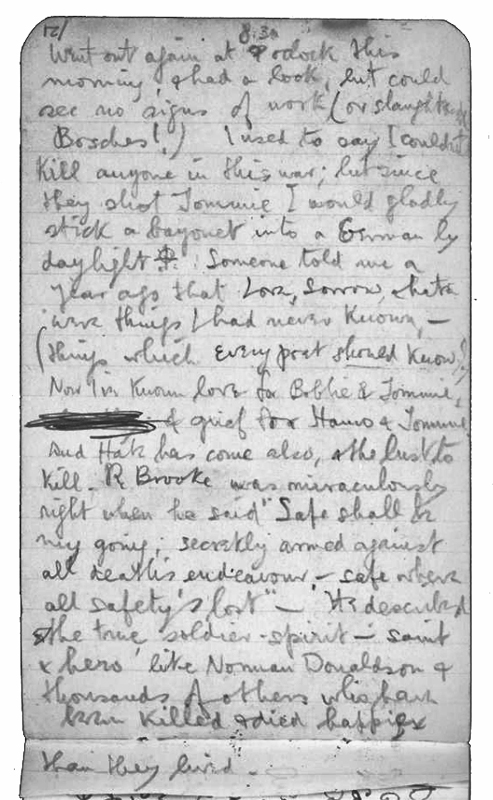 12/
8.30
Went out again at 9 oclock this
morning, & had a look, but could
see no signs of work (or slaughtered
Bosches!) I used to say I couldn't
kill anyone in this war; but since
they shot Tommie I would gladly
stick a bayonet into a German by
daylight. Someone told me a
year ago that love, sorrow, & hate
were things I had never known, —
(things which every poet should know!)
Now I've known love for Bobbie & Tommie,
& grief for Hamo & Tommie
And Hate has come also, & the lust to
kill. R Brooke was miraculously
right when he said "Safe shall be
my going; secretly armed against
all death's endeavour, — safe where
all safety's lost" — He described
the true soldier-spirit — saint
& hero like Norman Donaldson &
thousands of others who have
been killed & died happier
than they lived.